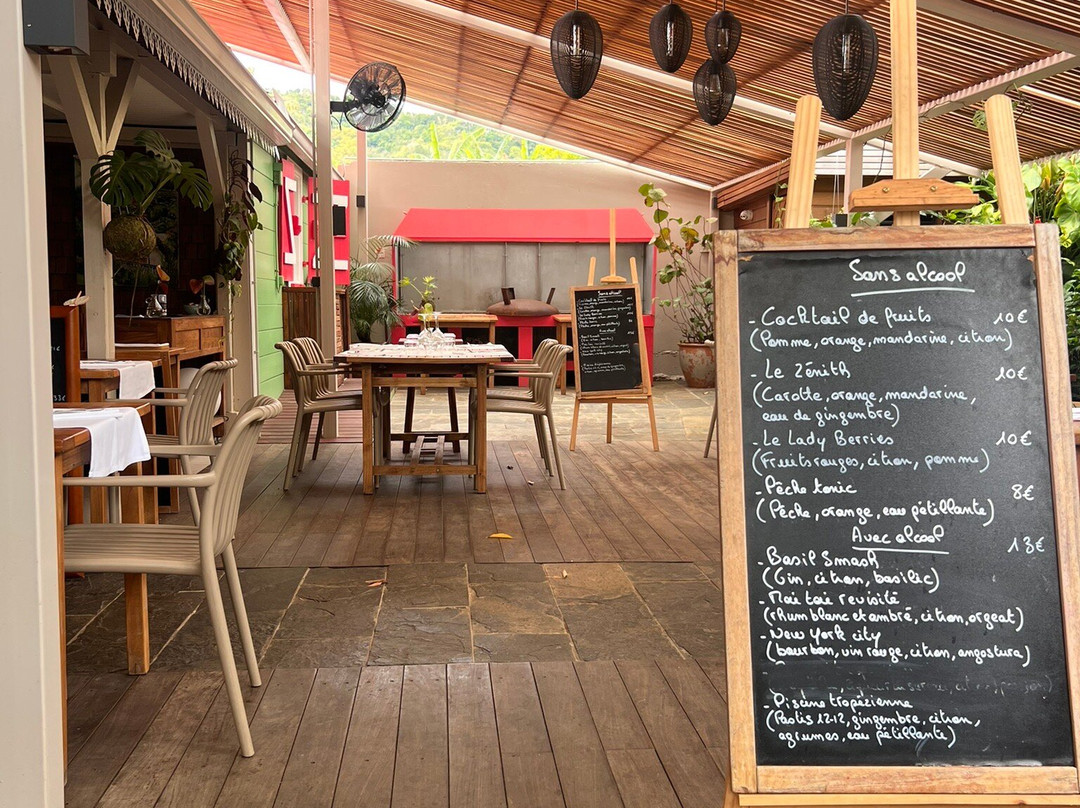 Sans alcool
- Cocktail de fruits 10€
(Pomme, orange, mandarine, citron)
- Le Zénith 10€
(Carotte, orange, mandarine,
eau de gingembre)
- Le Lady Berries 10€
(Fruits rouges, citron, pomme)
- Pêche tonic 8€
(Pêche, orange, eau pétillante)
Avec alcool 13€
- Basil Smash
(Gin, citron, basilic)
- Mai tai revisité
(rhum blanc et ambré, citron, orgeat)
- New York city
(bourbon, vin rouge, citron, angostura)
- Piscine tropézienne
(Pastis 12-12, gingembre, citron,
agrumes, eau pétillante)
Sans alcool